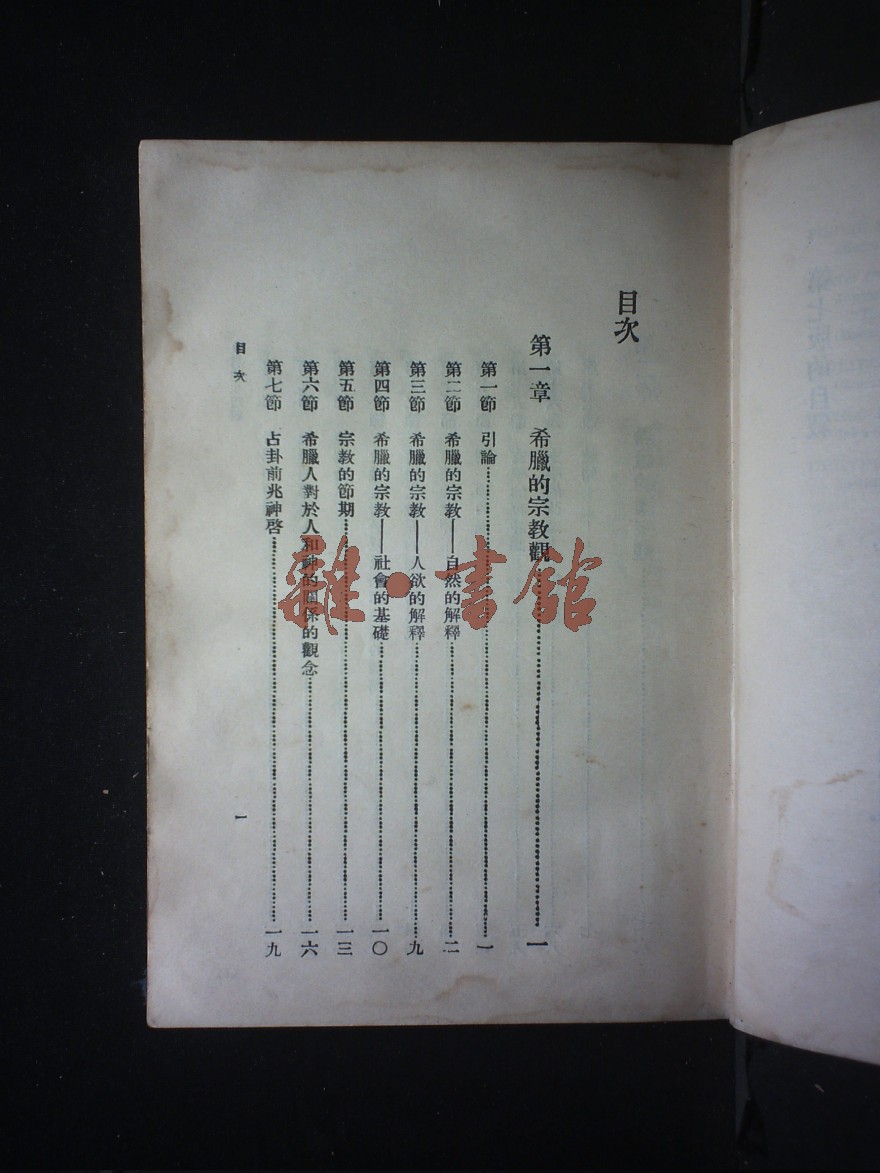 目次
第一章 希臘的宗教觀……一
第一節 引論……一
第二節 希臘的宗教——自然的解釋……二
第三節 希臘的宗教——人欲的解釋……九
第四節 希臘的宗教——社會的基礎……一〇
第五節 宗教的節期……一三
第六節 希臘人對於人和神的關係的觀念……一六
第七節 占卦前兆神啓……一九
目次
一
雜·書館